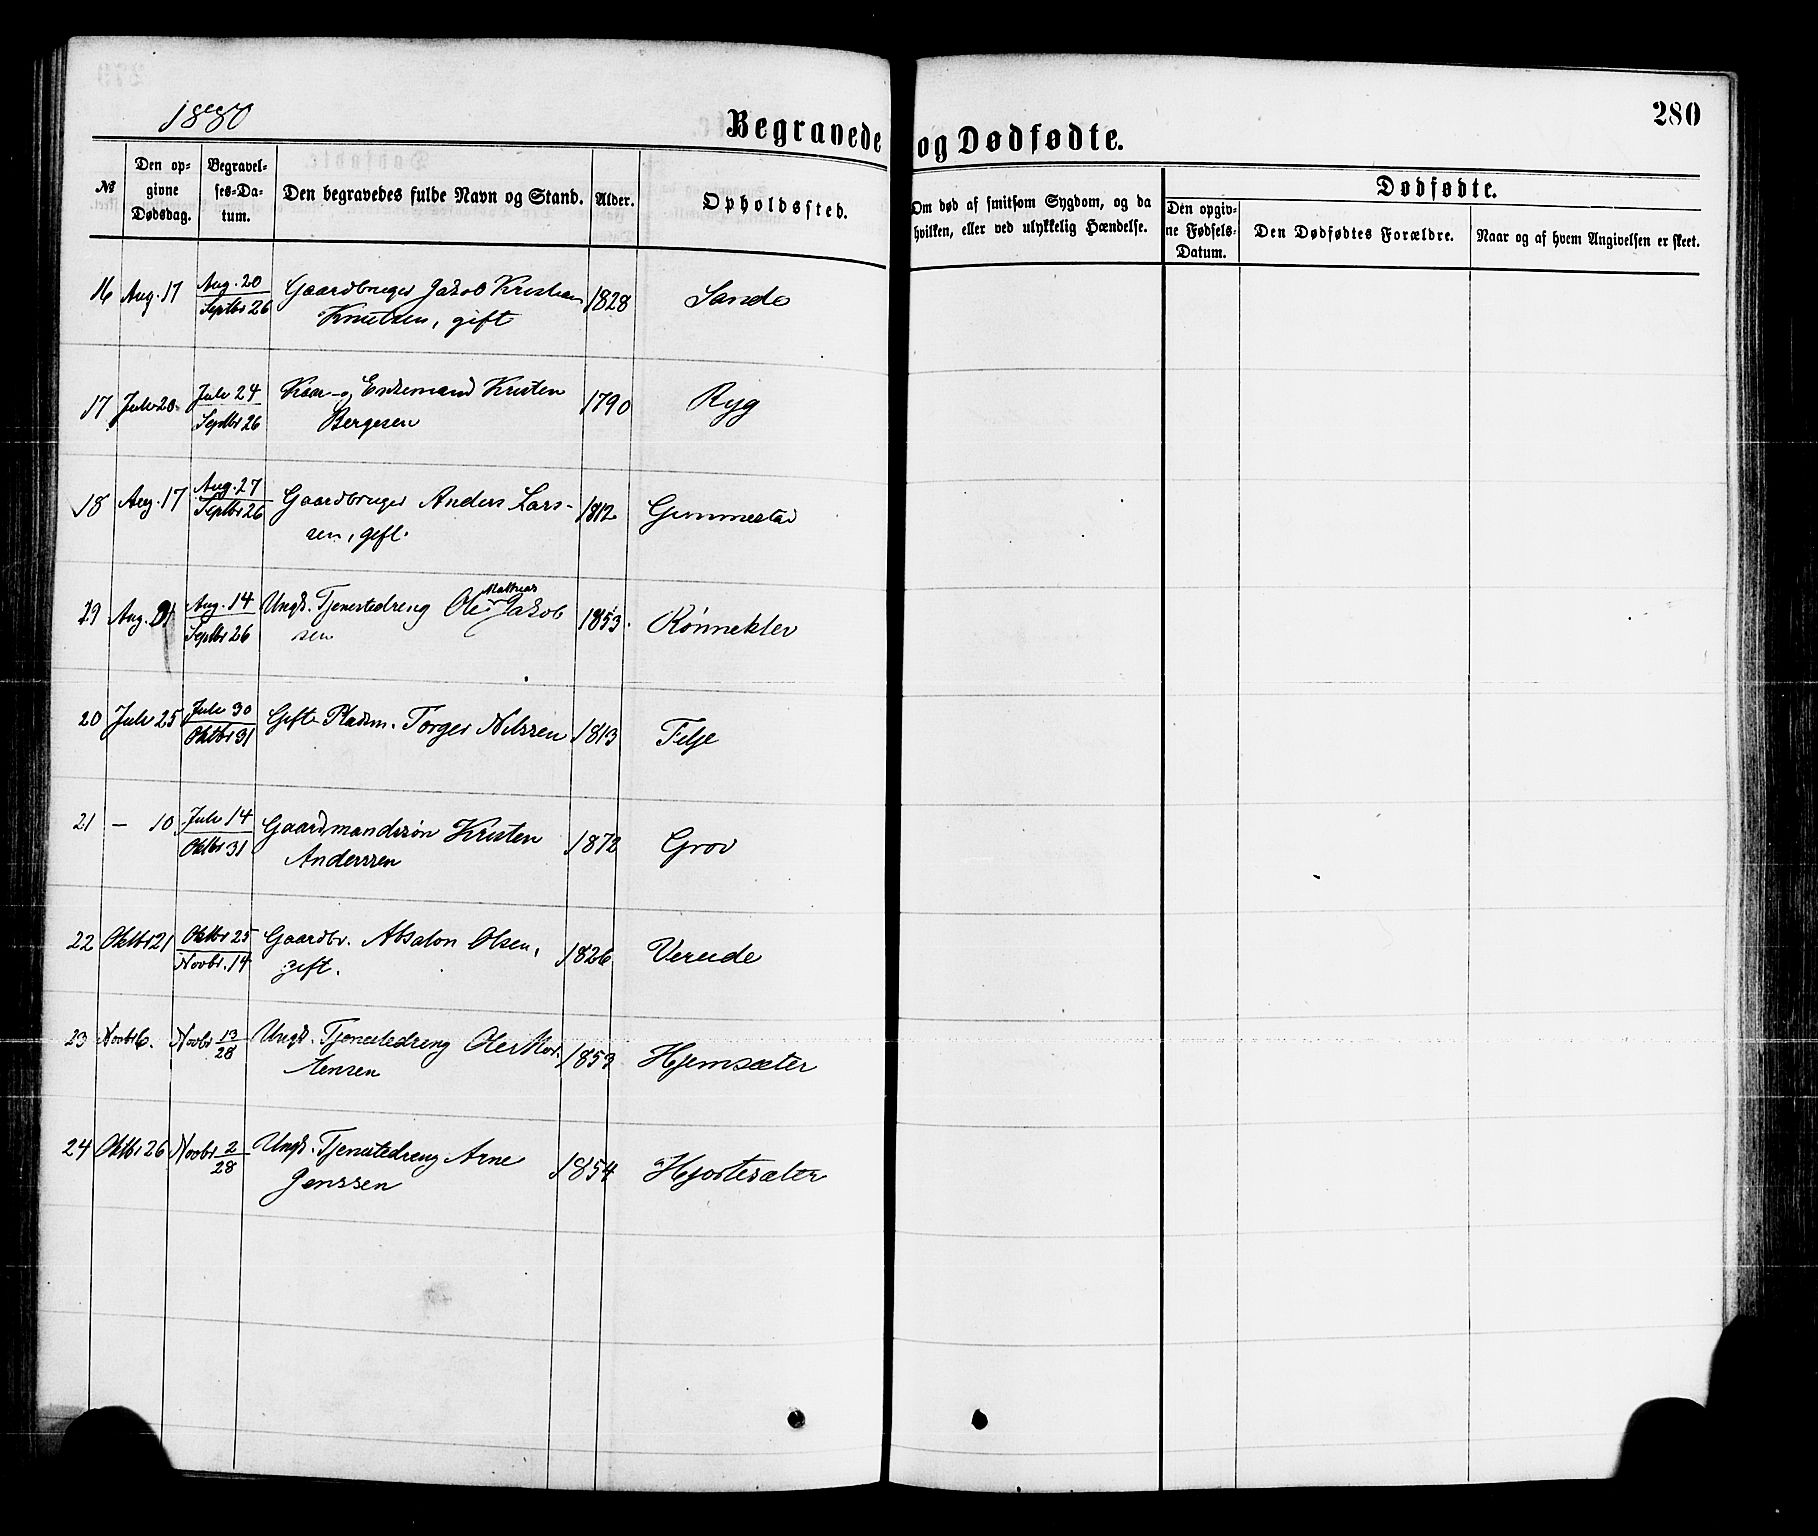 280
1880
Begravede og Dødfødte.
№
Den op-
givne
Dødsdag.
Begravel-
ses-Da-
tum.
Den begravedes fulde Navn og Stand.
Alder.
Opholdssted.
Om død af smitsom Sygdom, og da
hvilken, eller ved ulykkelig Hændelse.
Dødfødte.
Den opgiv-
ne Fødsels-
Datum.
Den Dødfødtes Forældre.
Naar og af hvem Angivelsen er skeet.
16 Aug. 17 Aug. 20 Gaardbruger Jakob Kristian 1828 Sande
Septbr 26 Knutsen, gift
17 Juli 20. Juli 24 Kaar- og Enkemand Kristen 1790 Ryg
Septbr 26 Bergesen
18 Aug. 17 Aug. 27 Gaardbruger Anders Lars- 1812 Gimmestad
Septbr 26 sen, gift.
Mathias
19 Aug. Aug. 14 Ungk. Tjenestedreng Ole Jakob 1853. Rønneklev
Septbr 26 sen
20 Juli 25 Juli 30 Gift Pladsm. Torger Nilssen 1813 Felje
Oktbr 31
21 — 10 Juli 14 Gaardmandssøn Kristen 1872 Grov
Oktbr 31 Anderssen
22 Oktbr 21 Oktbr 25 Gaardbr. Absalon Olsen, 1826 Vereide
Novbr. 14 gift.
23 Novbr 6. Novbr 13 Ungk. Tjenestedreng Ole Mor- 1853 Hjemsæter
28 tensen
24 Oktbr 26 Novbr 2 Ungk. Tjenestedreng Arne 1854 Hjortesæter
28 Jenssen